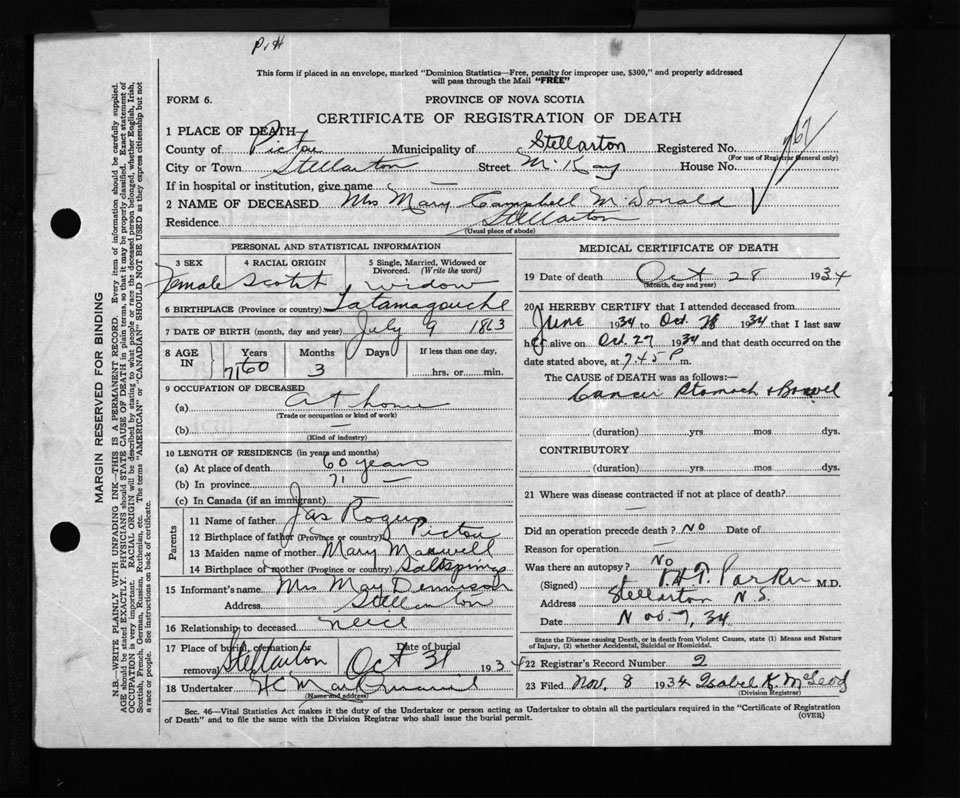 This form if placed in an envelope, marked "Dominion Statistics—Free, penalty for improper use, $300," and properly addressed
will pass through the Mail "FREE"
FORM 6.
PROVINCE OF NOVA SCOTIA
CERTIFICATE OF REGISTRATION OF DEATH
1 PLACE OF DEATH
County of Pictou Municipality of Stellarton Registered No.
(For use of Registrar General only)
City or Town Stellarton Street McKay House No.
If in hospital or institution, give name —
2 NAME OF DECEASED Mrs Mary Campbell McDonald
Residence Stellarton
(Usual place of abode)
PERSONAL AND STATISTICAL INFORMATION
3 SEX 4 RACIAL ORIGIN 5 Single, Married, Widowed or Divorced. (Write the word)
Female Scotch Widow
6 BIRTHPLACE (Province or country) Tatamagouche
7 DATE OF BIRTH (month, day and year) July 9 1863
8 AGE IN Years Months Days If less than one day,
71 60 3 hrs. or min.
9 OCCUPATION OF DECEASED
(a) At home
(Trade or occupation or kind of work)
(b) —
(Kind of industry)
10 LENGTH OF RESIDENCE (in years and months)
(a) At place of death 60 years
(b) In province 71 —
(c) In Canada (if an immigrant)
Parents
11 Name of father Jas Rogers
12 Birthplace of father (Province or country) Pictou
13 Maiden name of mother Mary Maxwell
14 Birthplace of mother (Province or country) Saltsprings
15 Informant's name Mrs May Dennison
Address Stellarton
16 Relationship to deceased neice
17 Place of burial, cremation or removal Stellarton Date of burial Oct 31 1934
18 Undertaker
(Name and address)
MEDICAL CERTIFICATE OF DEATH
19 Date of death Oct 28 1934
(Month, day and year)
20 I HEREBY CERTIFY that I attended deceased from
June 1934 to Oct. 28 1934 that I last saw
her alive on Oct. 27 1934 and that death occurred on the
date stated above, at 7.45 P m.
The CAUSE OF DEATH was as follows:—
Cancer Stomach & Bowel
(duration) yrs mos dys.
CONTRIBUTORY
(duration) yrs. mos dys.
21 Where was disease contracted if not at place of death?
—
Did an operation precede death? NO Date of
Reason for operation —
Was there an autopsy? No
(Signed) Parker M.D.
Address Stellarton N.S.
Date Nov. 7, 34
State the Disease causing Death, or in death from Violent Causes, state (1) Means and Nature
of Injury, (2) whether Accidental, Suicidal or Homicidal.
22 Registrar's Record Number 2
23 Filed Nov. 8 1934 Isabel K. McLeod
(Division Registrar)
Sec. 46—Vital Statistics Act makes it the duty of the Undertaker or person acting as Undertaker to obtain all the particulars required in the "Certificate of Registration
of Death" and to file the same with the Division Registrar who shall issue the burial permit.
(OVER)
MARGIN RESERVED FOR BINDING
N.B.—WRITE PLAINLY WITH UNFADING INK—THIS IS A PERMANENT RECORD. Every item of information should be carefully supplied.
AGE should be stated EXACTLY. PHYSICIANS should STATE CAUSE OF DEATH in plain terms, so that it may be properly classified. Exact statement of
OCCUPATION is very important. RACIAL ORIGIN will be described by stating to what people or race the deceased person belonged, whether English, Irish,
Scottish, French, German, Russian, Ruthenian, etc. The terms "AMERICAN" or "CANADIAN" SHOULD NOT BE USED as they express citizenship but not
a race or people. See instructions on back of certificate.